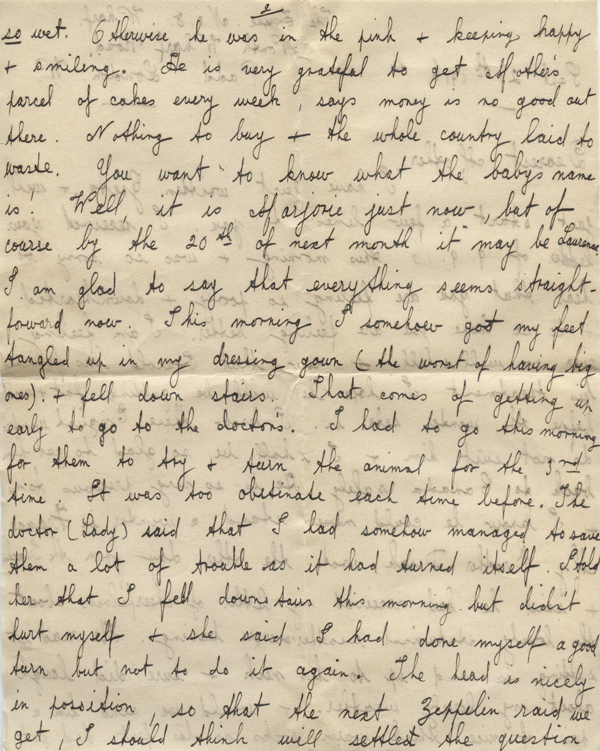 2
so wet. Otherwise he was in the pink + keeping happy
+ smiling. He is very grateful to get Mother's
parcel of cakes every week, says money is no good out
there. Nothing to buy + the whole country laid to
waste. You want to know what the baby's name
is! Well, it is Marjorie just now, but of
course by the 20th of next month it may be Laurence.
I am glad to say that everything seems straight-
forward now. This morning I somehow got my feet
tangled up in my dressing gown (the worst of having big
ones). + fell down stairs. That comes of getting up
early to go to the doctors. I had to go this morning
for them to try + turn the animal for the 3rd
time. It was too obstinate each time before. The
doctor (Lady) said that I had somehow managed to save
them a lot of trouble as it had turned itself. I told
her that I fell downstairs this morning but didn't
hurt myself + she said I had done myself a good
turn but not to do it again. The head is nicely
in possition, so that the next Zeppelin raid we
get, I should think will settled the question